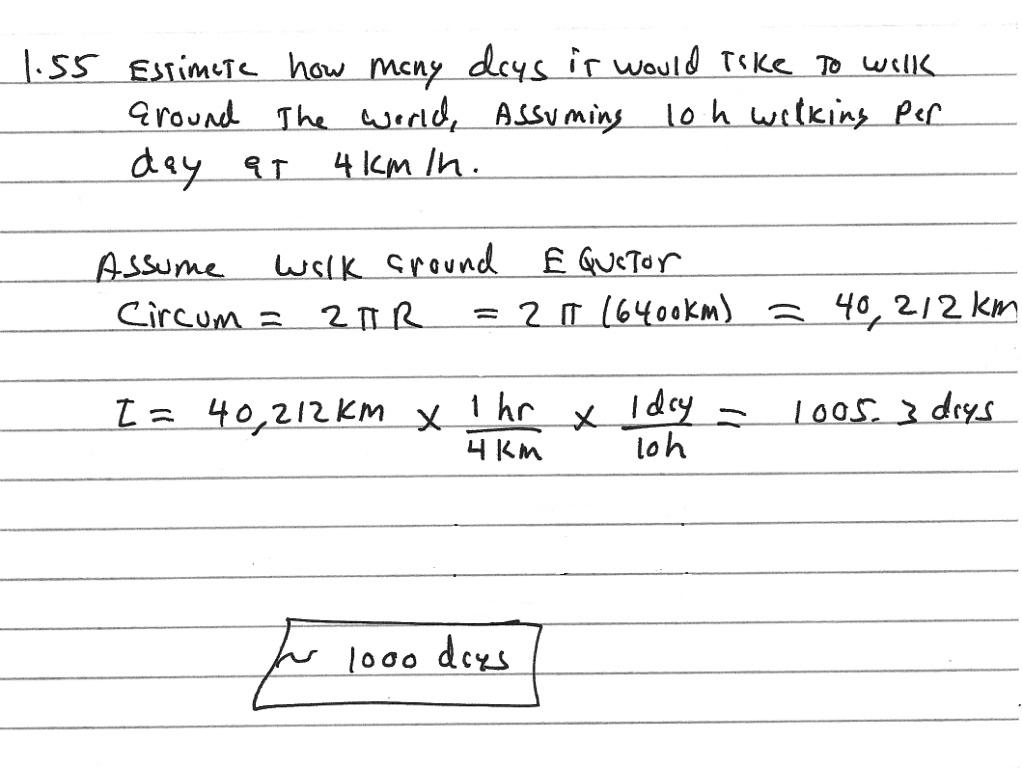 1.55 Estimate how many days it would take to walk
around the world, Assuming 10 h walking per
day at 4 km/h.
Assume walk around Equator
Circum = 2πR = 2π(6400km) = 40,212 km
t = 40,212 km × 1 hr/4 km × 1 day/10h = 1005.3 days
~ 1000 days